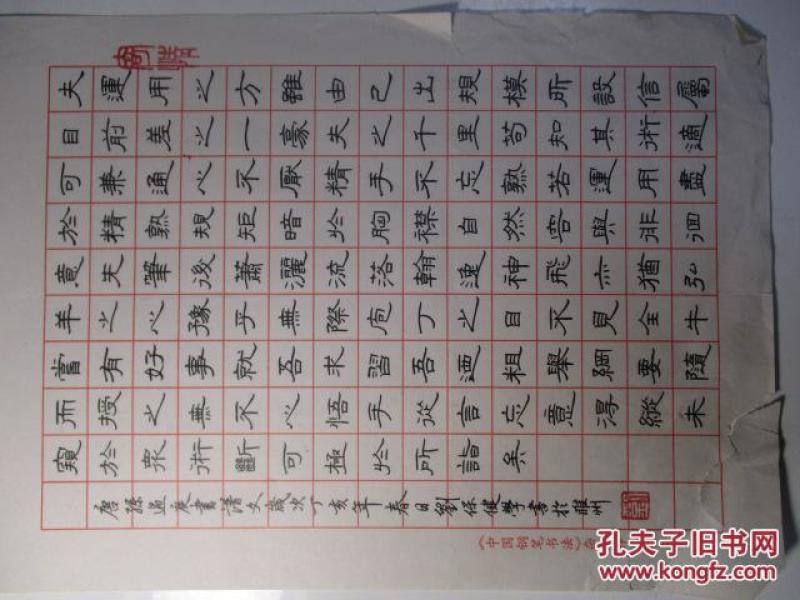 夫運用之方雖由己出規模所設信屬
目前差之一豪失之千里苟知其術適
可兼通心不厭精手不忘熟若運用盡
於精熟規矩暗於胸襟自然容與徘徊
意先筆後蕭灑流落翰逸神飛亦猶弘
羊之心豫乎無際庖丁之目不見全牛
當有好事就吾求習吾迺粗舉綱要隨
而授之無不心悟手從言忘意得縱未
窺於衆術斷可極於所詣矣
唐孫過庭書譜文歲次丁亥年春日劉保健學書於雅州
《中国钢笔书法》
孔夫子旧书网
www.kongfz.com